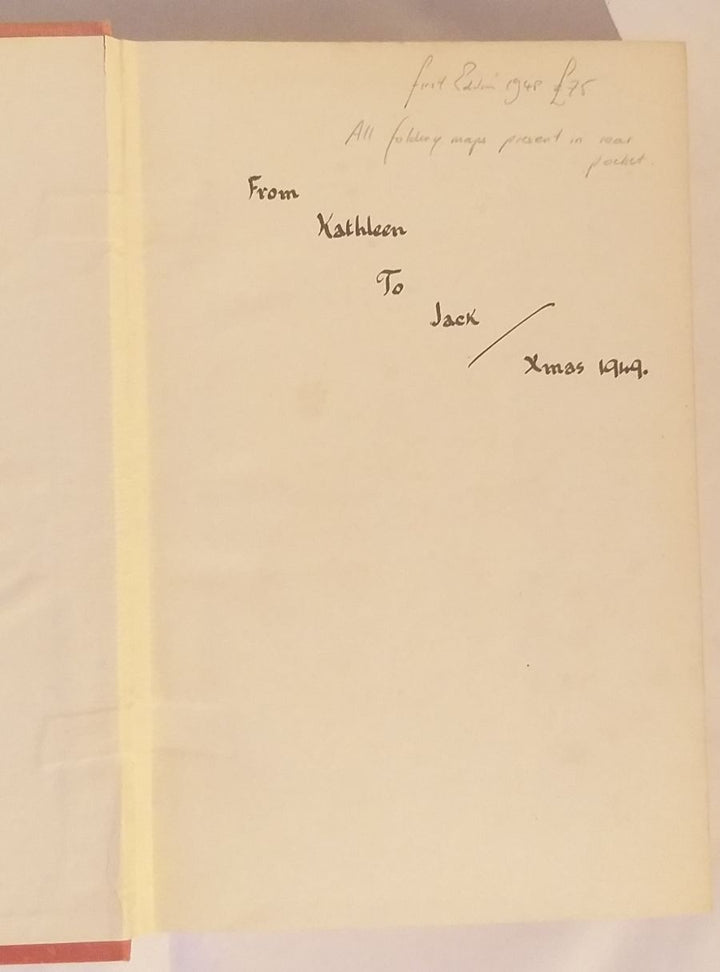 first Edition 1948 £75
All folding maps present in rear
pocket.
From
Kathleen
To
Jack
Xmas 1949.